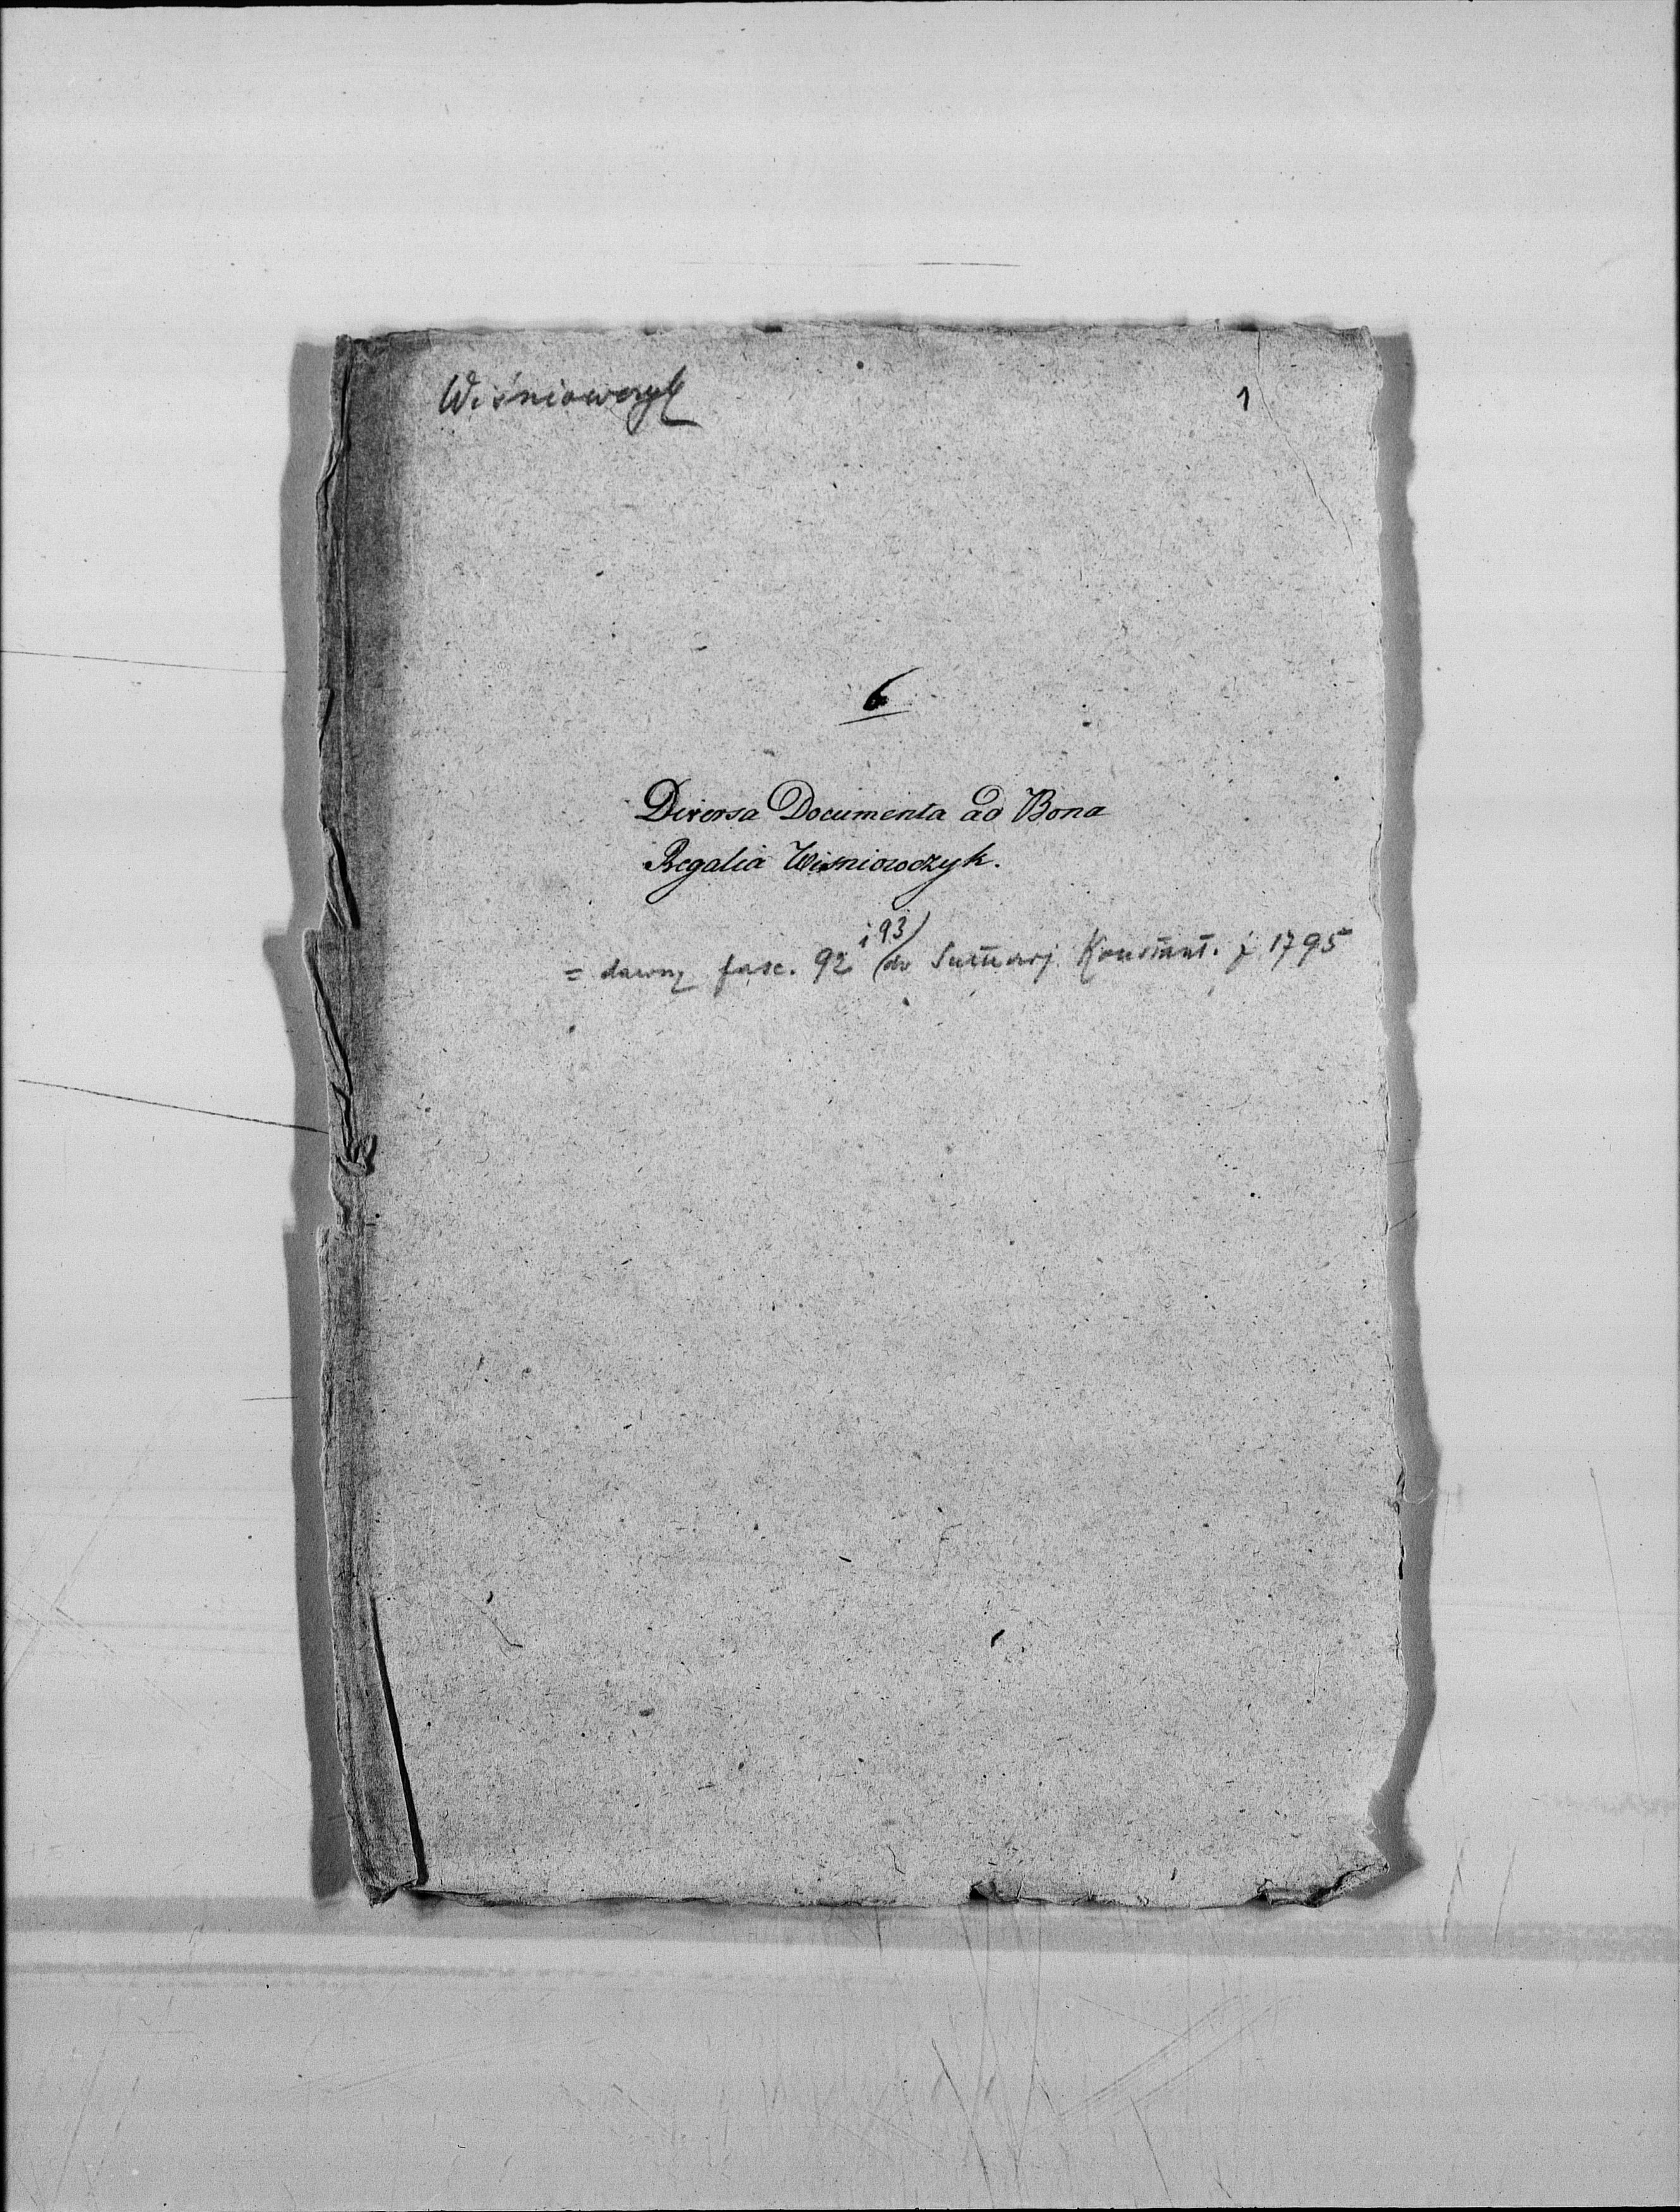 Wiśniowczyk
1
6
Diversa Documenta ad Bona
Regalia Wisniowczyk.
= dawny fasc. 92 i 93 do Konstant. z 1795